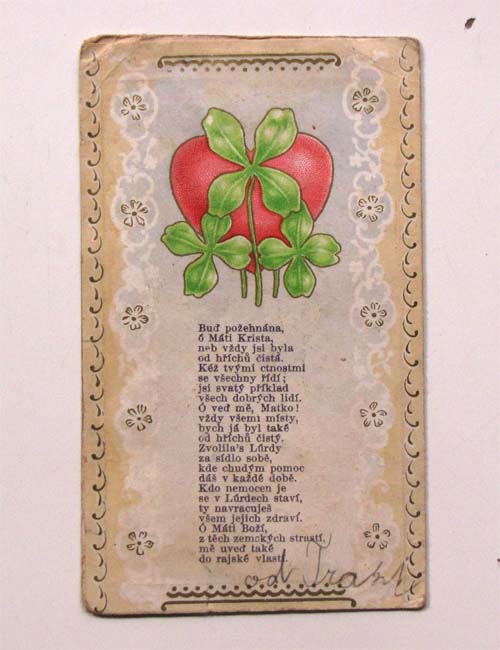 Buď požehnána,
ó Máti Krista,
neb vždy jsi byla
od hříchů čistá.
Kéž tvými ctnostmi
se všechny řídí;
jsi svatý příklad
všech dobrých lidí.
Ó veď mě, Matko!
vždy všemi místy,
bych já byl také
od hříchů čistý.
Zvolila's Lúrdy
za sídlo sobě,
kde chudým pomoc
dáš v každé době.
Kdo nemocen je
se v Lúrdech staví,
ty navracuješ
všem jejich zdraví.
Ó Máti Boží,
z těch zemských strastí,
mě uveď také
do rajské vlasti.
od